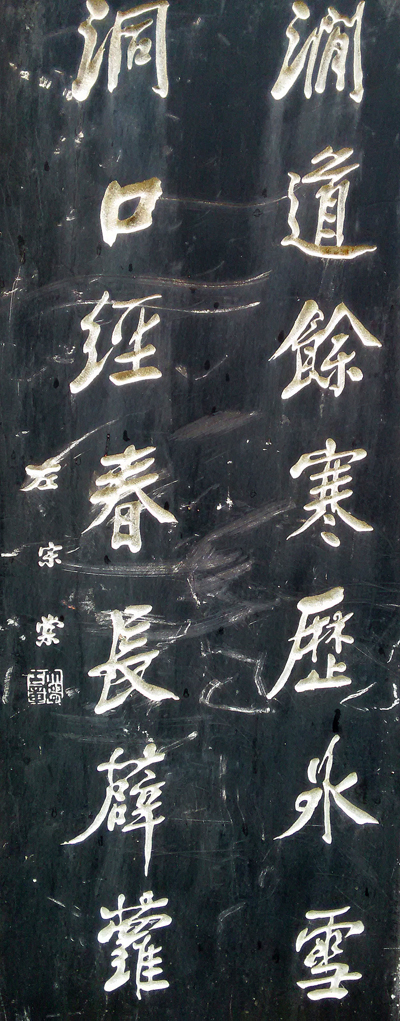 澗道餘寒歷冰雪
洞口經春長薜蘿
左宗棠